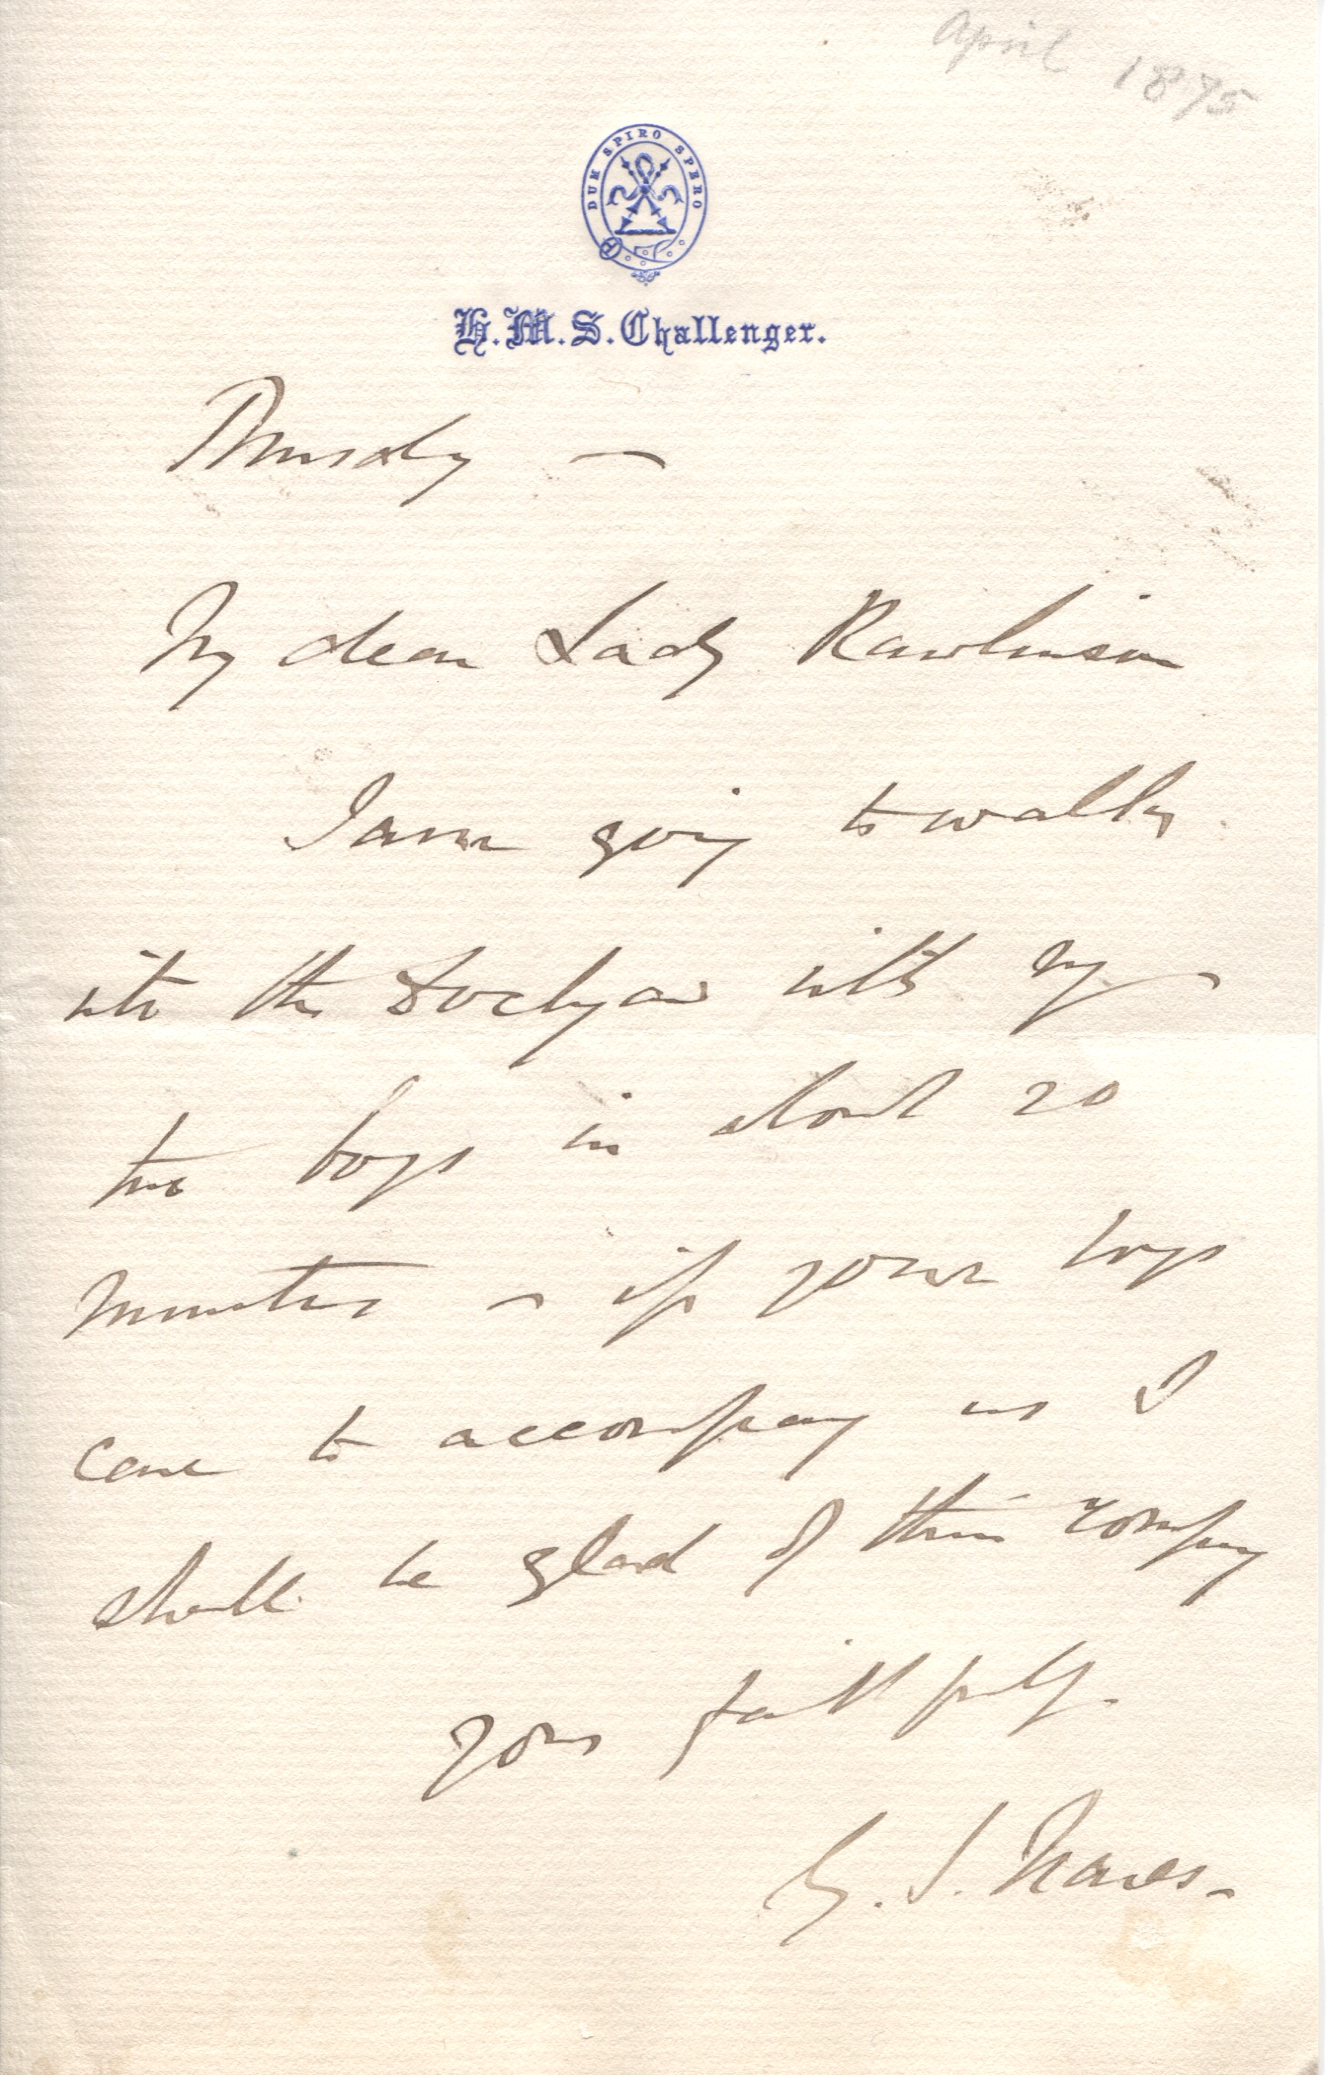 April 1875
DUM SPIRO SPERO
H.M.S. Challenger.
Thursday —
My dear Lady Rawlinson
I am going to walk
into the Dockyard with my
two boys in about 20
minutes — if your boys
care to accompany us I
shall be glad of their company
yours faithfully.
G. S. Nares -